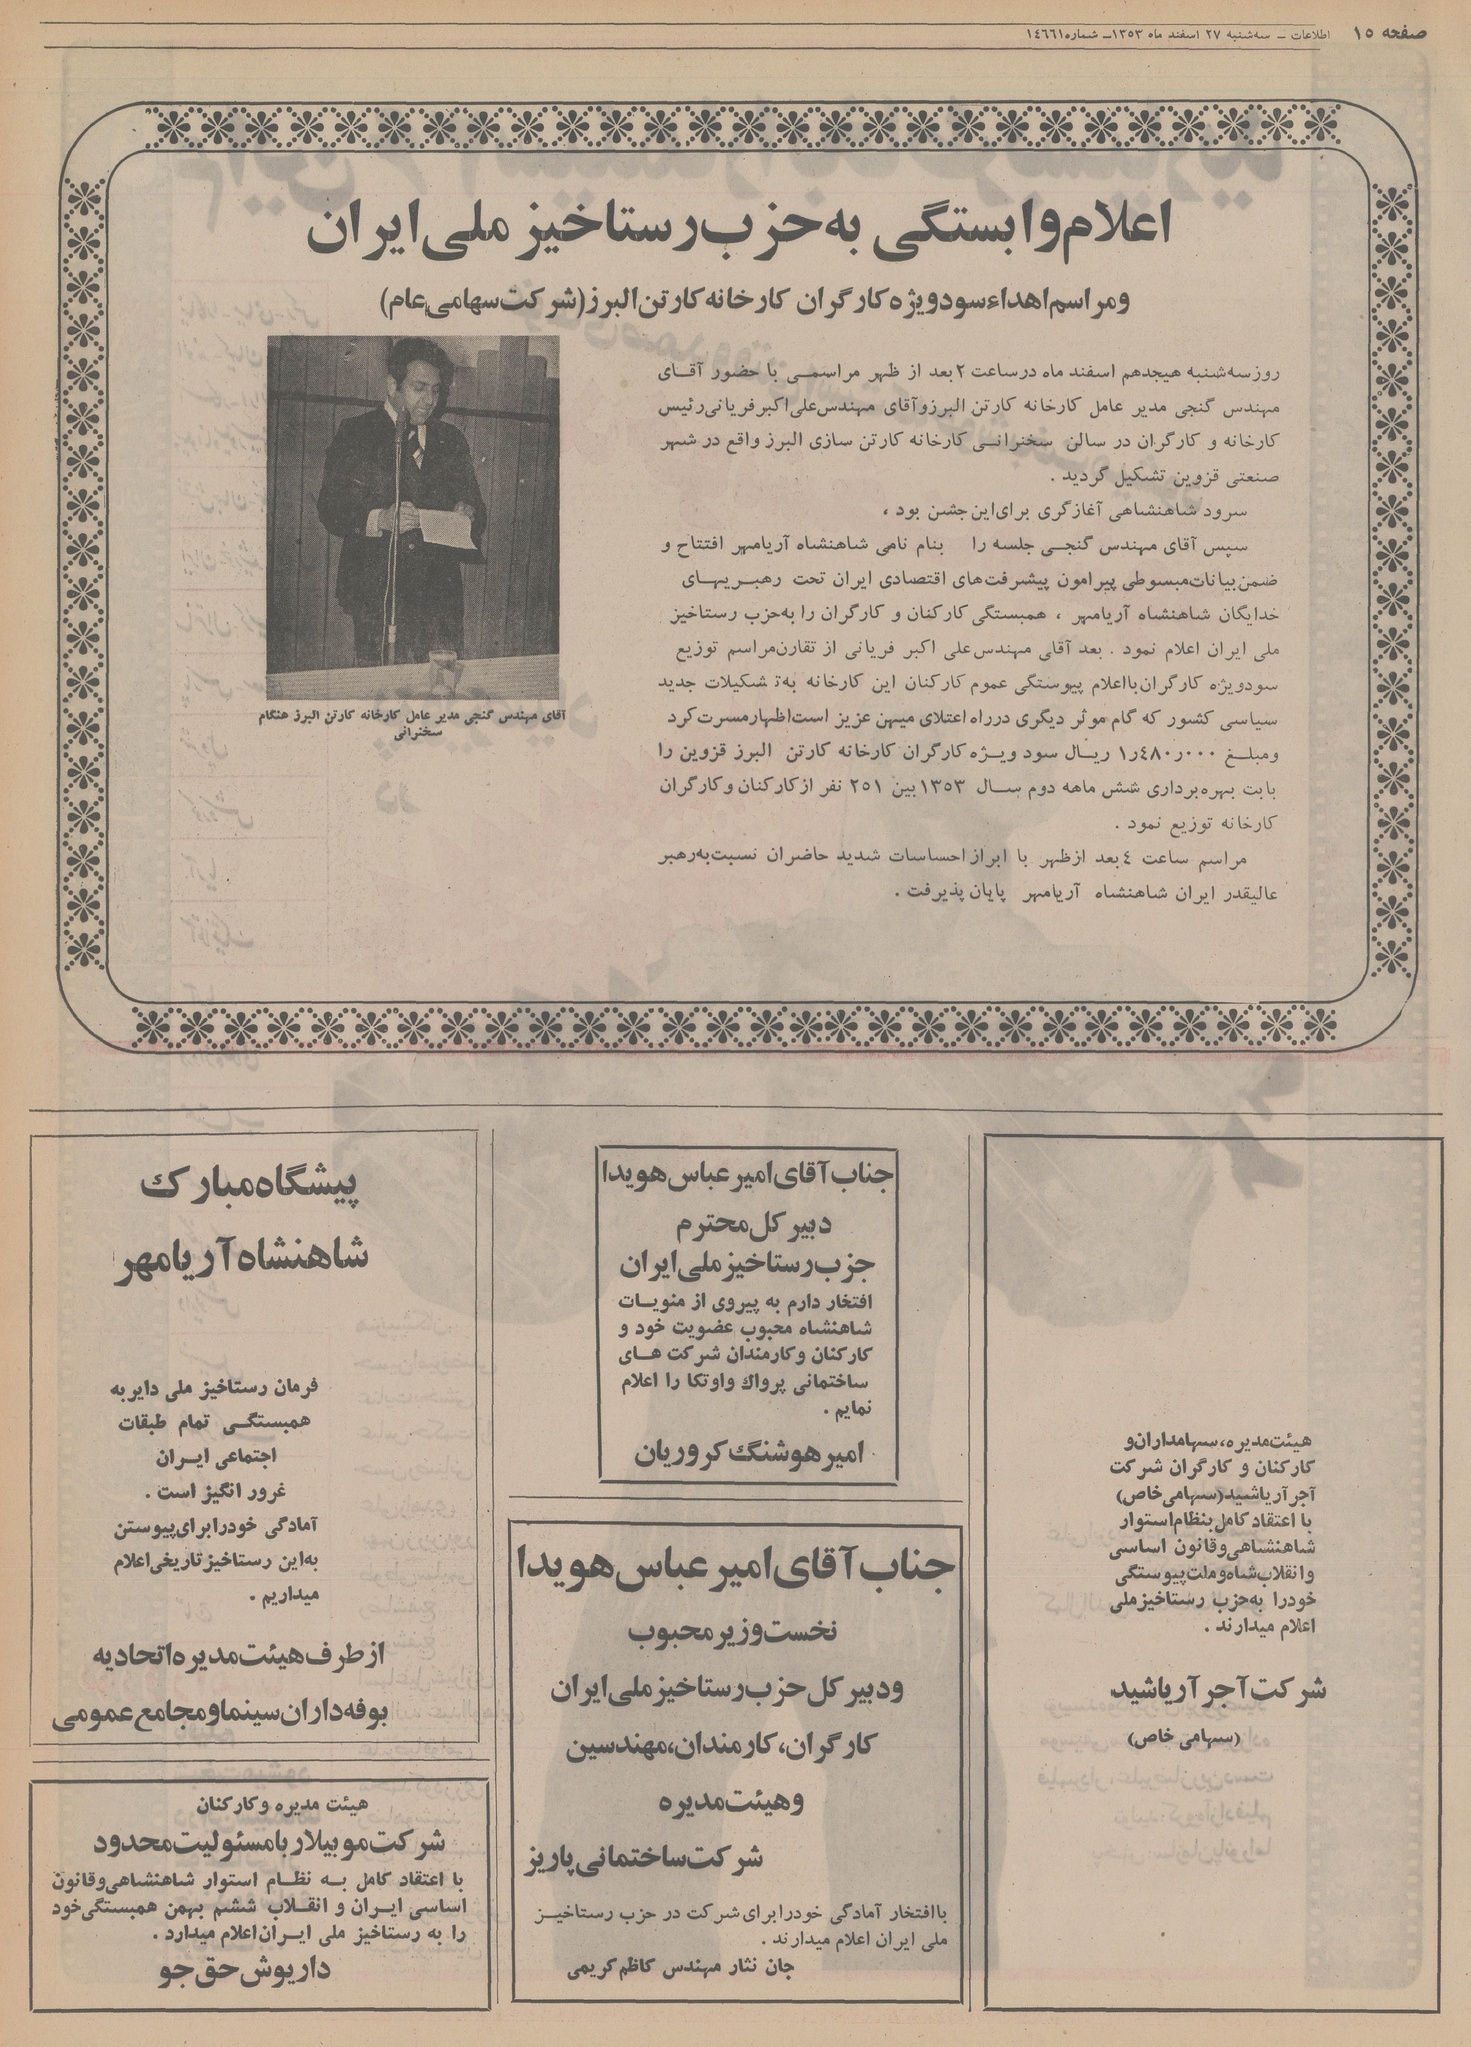 صفحه ۱۵ اطلاعات ـ سه‌شنبه ۲۷ اسفند ماه ۱۳۵۳ـ شماره۱٤٦٦۱
اعلام‌وابستگی به‌حزب‌رستاخیز ملی‌ایران
ومراسم‌اهداءسودویژه‌کارگران کارخانه‌کارتن‌البرز(شرکت‌سهامی‌عام)
روزسه‌شنبه هیجدهم اسفند ماه درساعت ۲بعد از ظهر مراسمی با حضور آقای
مهندس گنجی مدیر عامل کارخانه کارتن البرزوآقای مهندس‌علی‌اکبرفریانی‌رئیس
کارخانه و کارگران در سالن سخنرانی کارخانه کارتن سازی البرز واقع در شهر
صنعتی قزوین تشکیل گردید .
سرود شاهنشاهی آغازگری برای‌این‌جشن بود ،
سپس آقای مهندس گنجی جلسه را بنام نامی شاهنشاه آریامهر افتتاح و
ضمن‌بیانات‌مبسوطی پیرامون پیشرفت‌های اقتصادی ایران تحت رهبریهای
خدایگان شاهنشاه آریامهر ، همبستگی کارکنان و کارگران را به‌حزب رستاخیز
ملی ایران اعلام نمود . بعد آقای مهندس‌علی اکبر فریانی از تقارن‌مراسم توزیع
سودویژه کارگران‌بااعلام پیوستگی عموم کارکنان این کارخانه به‌تشکیلات جدید
سیاسی کشور که گام موثر دیگری درراه اعتلای میهن عزیز است‌اظهارمسرت‌کرد
ومبلغ ۱٫٤۸۰٫۰۰۰ ریال سود ویژه کارگران کارخانه کارتن البرز قزوین را
بابت بهره‌برداری شش ماهه دوم سال ۱۳۵۳بین ۲۵۱ نفر ازکارکنان وکارگران
کارخانه توزیع نمود .
مراسم ساعت ٤بعد ازظهر با ابراز احساسات شدید حاضران نسبت‌به‌رهبر
عالیقدر ایران شاهنشاه آریامهر پایان پذیرفت .
آقای مهندس گنجی مدیر عامل کارخانه کارتن البرز هنگام
سخنرانی
هیئت‌مدیره،سهامداران‌و
کارکنان و کارگران شرکت
آجرآریاشید(سهامی‌خاص)
با اعتقادکامل‌بنظام‌استوار
شاهنشاهی‌وقانون اساسی
وانقلاب‌شاه‌وملت‌پیوستگی
خودرا به‌حزب رستاخیزملی
اعلام میدارند .
شرکت‌آجرآریاشید
(سهامی خاص)
جناب‌آقای‌امیرعباس‌هویدا
دبیرکل‌محترم
جزب‌رستاخیزملی‌ایران
افتخار دارم به پیروی از منویات
شاهنشاه محبوب عضویت خود و
کارکنان وکارمندان شرکت های
ساختمانی پرواك واوتکا را اعلام
نمایم .
امیرهوشنگ‌کروریان
جناب‌آقای‌امیرعباس‌هویدا
نخست‌وزیرمحبوب
ودبیرکل‌حزب‌رستاخیزملی‌ایران
کارگران،کارمندان،مهندسین
وهیئت‌مدیره
شرکت‌ساختمانی‌پاریز
باافتخار آمادگی خودرابرای‌شرکت در حزب رستاخیز
ملی ایران اعلام میدارند .
جان نثار مهندس کاظم‌کریمی
پیشگاه‌مبارك
شاهنشاه‌آریامهر
فرمان رستاخیز ملی دایربه
همبستگی تمام طبقات
اجتماعی ایران
غرور انگیز است .
آمادگی خودرابرای‌پیوستن
به‌این رستاخیزتاریخی‌اعلام
میداریم .
ازطرف‌هیئت‌مدیره‌اتحادیه
بوفه‌داران‌سینماومجامع‌عمومی
هیئت مدیره وکارکنان
شرکت‌موبیلاربامسئولیت‌محدود
با اعتقاد کامل به نظام استوار شاهنشاهی‌وقانون
اساسی ایران و انقلاب ششم بهمن همبستگی‌خود
را به رستاخیز ملی ایران‌اعلام میدارد .
داریوش‌حق‌جو